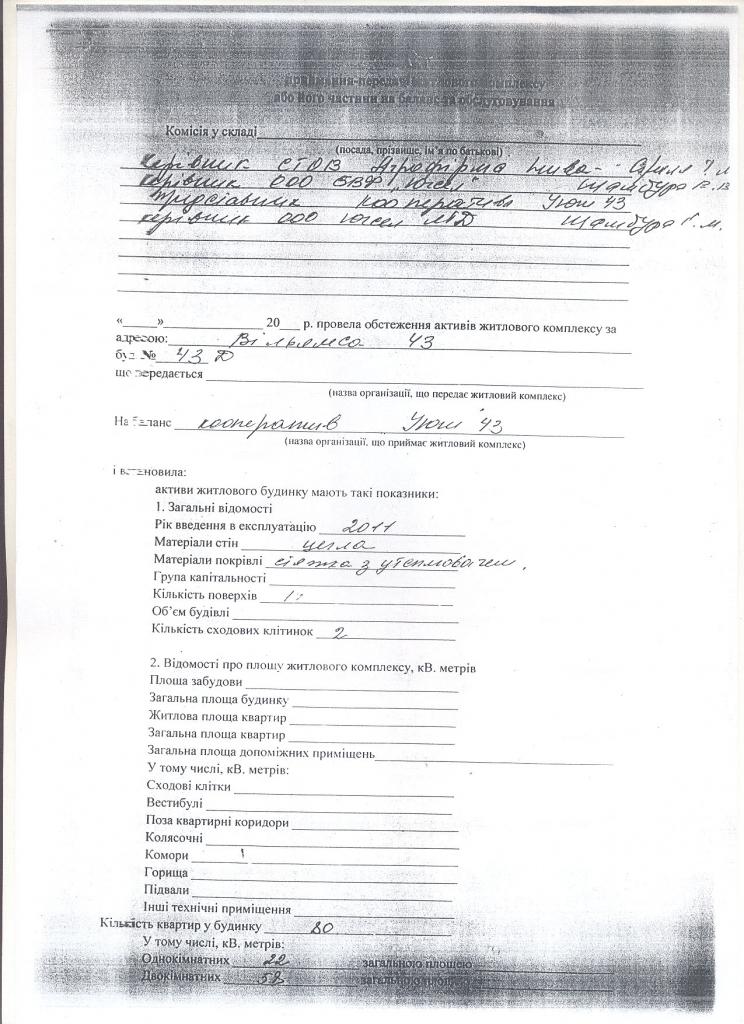 приймання-передачі житлового комплексу
або його частини на баланс та обслуговування
Комісія у складі
(посада, прізвище, ім'я по батькові)
керівник СТОВ Агрофірма Нива-
керівник ООО БВФ "Юнсел" Шамбура В.В
Представник кооператива Уюн 43
керівник ООО Юнсел ЛТД Шамбура Г.М.
«____»____________ 20___ р. провела обстеження активів житлового комплексу за
адресою: Вільямса 43
буд. № 43 Д
що передається
(назва організації, що передає житловий комплекс)
На баланс кооператив Уюн 43
(назва організації, що приймає житловий комплекс)
і встановила:
активи житлового будинку мають такі показники:
1. Загальні відомості
Рік введення в експлуатацію 2011
Матеріали стін цегла
Матеріали покрівлі стяжка з утеплювачем,
Група капітальності
Кількість поверхів
Об'єм будівлі
Кількість сходових клітинок 2
2. Відомості про площу житлового комплексу, кВ. метрів
Площа забудови
Загальна площа будинку
Житлова площа квартир
Загальна площа квартир
Загальна площа допоміжних приміщень
У тому числі, кВ. метрів:
Сходові клітки
Вестибулі
Поза квартирні коридори
Колясочні
Комори
Горища
Підвали
Інші технічні приміщення
Кількість квартир у будинку 80
У тому числі, кВ. метрів:
Однокімнатних 22 загальною площею
Двокімнатних 58 загальною площею